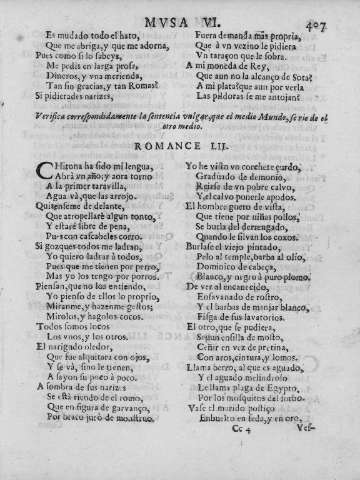 MVSA VI. 407
Es mudado todo el hato,
Que me abriga, y que me adorna,
Pues como si lo sabeys,
Me pedis en larga prosa,
Dineros, y vna merienda,
Tan sin gracias, y tan Romas?
Si pidierades narizes,
Fuera demanda mas propria,
Que à vn vezino le pidiera
Vn taraçon que le sobra.
A mi moneda de Rey,
Que aun no la alcanço de Sota?
A mi plata? que aun por verla
Las pildoras se me antojan?
Verifica correspondidamente la sentencia vulgar, que el medio Mundo, se rie de el
otro medio.
ROMANCE LII.
CHitona ha sido mi lengua,
Abrà vn año; y aora torno
A la primer taravilla,
Agua và, que las arrojo.
Quitenseme de delante,
Que atropellarè algun tonto,
Y estarè libre de pena,
Pues con cascabeles corro.
Si gozques todos me ladran,
Yo quiero ladrar à todos,
Pues que me tienen por perro,
Mas yo los tengo por porros.
Piensan, que no los entiendo,
Yo pienso de ellos lo proprio,
Miranme, y hazenme gestos;
Mirolos, y hagolos cocos.
Todos somos locos
Los vnos, y los otros.
El narigado oledor,
Que fue alquitara con ojos,
Y se và, sino le tienen,
A sayon su poco à poco.
A sombra de sus narizes
Se està riendo de el romo,
Que en figura de garvanço,
Por braco jurò de monstruo.
Yo he visto vn corchete gurdo,
Graduado de demonio,
Reirse de vn pobre calvo,
Y el calvo ponerle apodos.
El hombre gueto de vista,
Que tiene por niñas pollos,
Se burla del derrengado,
Quando le silvan los coxos.
Burlase el viejo pintado,
Pelo al temple, barba al olio,
Domínico de cabeça,
Blanco, y negro à puro plomo.
De ver al encanecido,
Ensavanado de rostro,
Y el barbas de manjar blanco,
Fisga de sus lavatorios.
El otro, que se pudiera,
Segun ensilla de mosto,
Ceñir en vez de pretina,
Con aros, cintura, y lomos.
Llama berro, al que es aguado,
Y el aguado melindroso
Le llama plaga de Egypto,
Por los mosquitos del sorbo.
Vase el marido postiço
Enbuelto en seda, y en oro,
Cc 4 Ves-